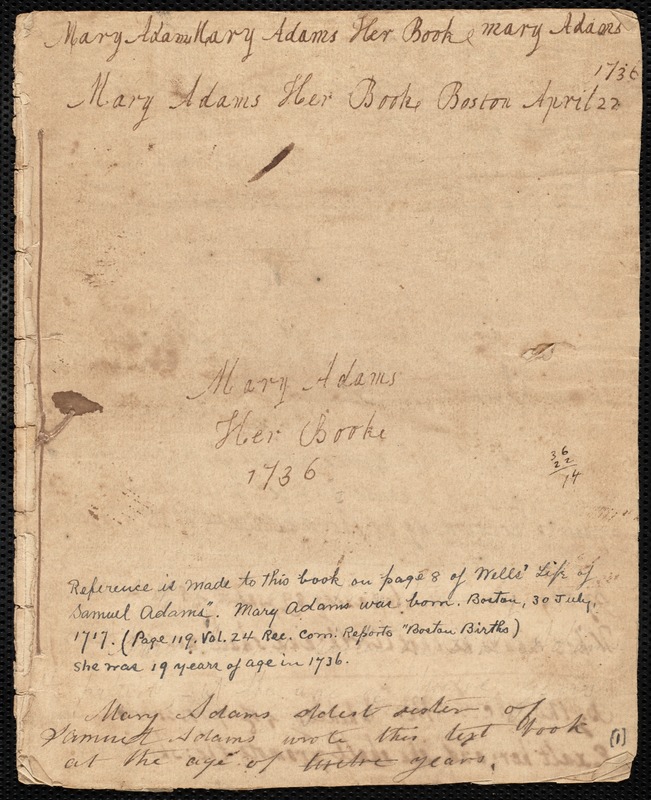 Mary Adams Mary Adams Her Booke mary Adams
1736
Mary Adams Her Booke Boston April 22
Mary Adams
Her Booke
1736
36
22
14
Reference is made to this book on page 8 of Wells' "Life of
Samuel Adams". Mary Adams was born. Boston, 30 July,
1717. (Page 119. Vol. 24 Rec. Com. Reports "Boston Births)
She was 19 years of age in 1736.
Mary Adams oldest sister of
Samuel Adams wrote this text book
at the age of twelve years.
[1]